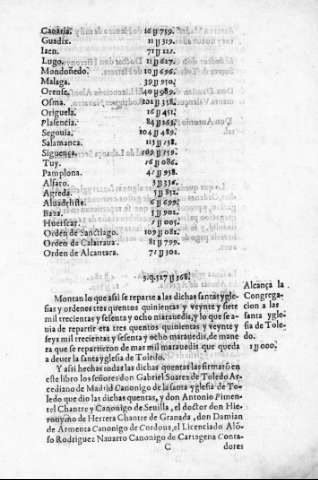 Canaria. 16 ȷȷ 759.
Guadix. 11 ȷȷ 319.
Iaen. 71 ȷȷ 121.
Lugo. 11 ȷȷ 617.
Mondoñedo. 10 ȷȷ 696.
Malaga. 39 ȷȷ 950.
Orense. 40 ȷȷ 989.
Osma. 101 ȷȷ 358.
Origuela. 16 ȷȷ 451.
Plasencia. 84 ȷȷ 263.
Segouia. 104 ȷȷ 489.
Salamanca. 113 ȷȷ 138.
Siguença. 109 ȷȷ 159.
Tuy. 16 ȷȷ 086.
Pamplona. 41 ȷȷ 958.
Alfaro.
Agreda.
6 ȷȷ 699.
Baua. 5 ȷȷ 901.
Huescar. 1 ȷȷ 005.
Orden de Sanctiago. 109 ȷȷ 081.
Orden de Calatraua. 81 ȷȷ 799.
Orden de Alcantara. 71 ȷȷ 301.
3.q.527 ȷȷ 368.
Montan lo que assi se reparte a las dichas santas ygle-
sias y ordenes tres quentos quinientas y veynte y siete
mil trecientas y sesenta y ocho marauedis, y lo que se a-
uia de repartir era tres quentos quinientas y veynte y
seys mil trecientas y sesenta y ocho marauedis, de mane
ra que se repartieron de mas mil marauedis que queda
a deuer la santa yglesia de Toledo.
Alcança la
Congrega-
cion a las
santa ygle-
sia de Tole-
do.
1 ȷȷ 000.
Y assi hechas todas las dichas quentas las firmarõ en
este libro los señores don Gabriel Suares de Toledo Ar-
cediano de Madrid Canonigo de la santa yglesia de To-
ledo que dio las dichas quentas, y don Antonio Pimen-
tel Chantre y Canonigo de Seuilla, el doctor don Hie-
ronymo de Herrera Chantre de Granada, don Damian
de Armenta Canonigo de Cordoua, el Licenciado Alõ-
so Rodriguez Nauarro Canonigo de Cartagena Conta-
C dores